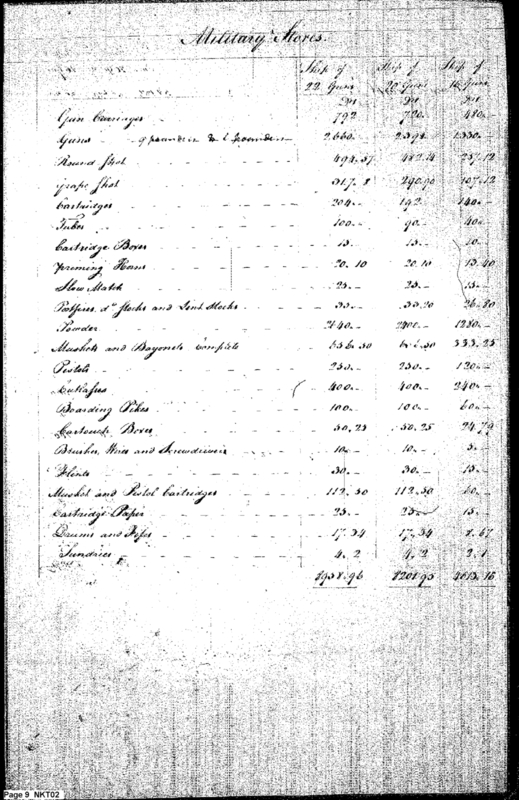 Military Stores.
Ship of Ship of Ship of
22 Guns 20 Guns 16 Guns
Drs Drs Drs
Gun Carriages 792 720 480
Guns 9 pounders & 6 pounders 2660 1330
Round Shot 494.37 482.14 237.12
Grape Shot 317.8 290.90 107.12
Cartridges 204 192 140
Tubes 100 90 40
Cartridge Boxes 15 15 10
Priming Horns 20.10 20.10 13.40
Slow Match 25 25 15
Portfires, do Stocks and Lint Stocks 33 33.20 26.80
Powder 2400 1280
Muskets and Bayonets complete 656.50 333.25
Pistols 250 250 120
Cutlasses 400 400 240
Boarding Pikes 100 100 60
Cartouch Boxes 50.25 50.25 24.79
Brushes, Wires and Screwdrivers 10 10 5
Flints 30 30 15
Musket and Pistol Cartridges 112.50 112.50 60
Cartridge Paper 25 25 15
Drums and Fifes 17.34 17.34 8.67
Sundries 4.2 4.2 2.1
8938.96 8201.95 4613.16
Page 9 NKT02